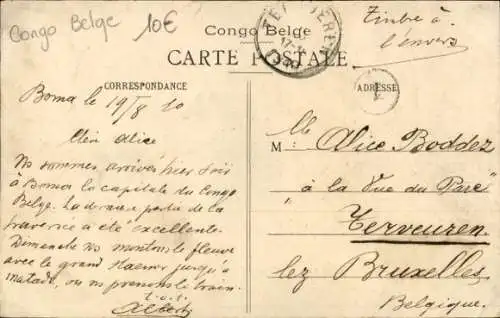 Congo Belge 10€
Timbré à
l'envers
Congo Belge
CARTE POSTALE
CORRESPONDANCE
ADRESSE
Boma le 19/8 10
Chère Alice
Ns sommes arrivés hier soir
à Boma la capitale du Congo
Belge. La dernière partie de la
traversée a été excellente.
Dimanche ns montons le fleuve
avec le grand steamer jusqu'à
Matadi, où ns prenons le train.
t.à.t.
Albert
M: Mlle Alice Boddez
"à la Vue du Parc"
Tervueren
lez Bruxelles
Belgique.